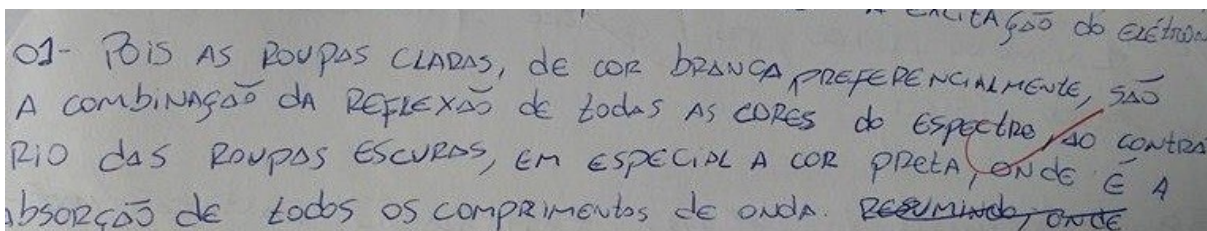 A EXCITAÇÃO do ELÉtRON
01- POIS AS ROUPAS CLARAS, dE COR bRANCA PREFERENCIALMENtE, SÃO
A COMbINAÇÃO dA REFLEXÃO dE tOdAS AS CORES dO ESPECtRO, AO CONtRÁ
RIO dAS ROUPAS ESCURAS, EM ESPECIAL A COR PREtA, ONdE É A
AbSORÇÃO dE tOdOS OS COMPRIMENtOS dE ONdA. RESUMINdO, ONdE